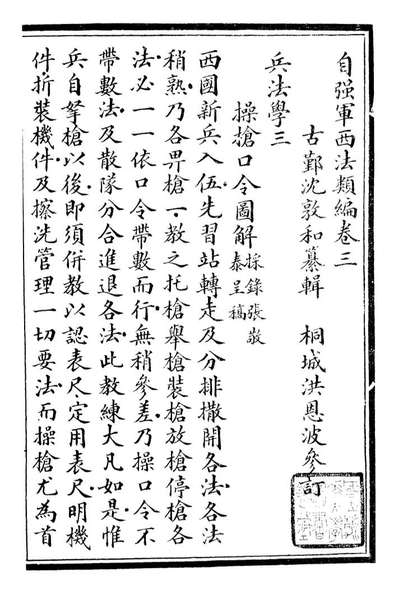 自强軍西法類編卷三
古鄞沈敦和纂輯 桐城洪恩波參訂
兵法學三
操槍口令圖解採錄張敬泰呈稿
西國新兵入伍先習站轉走及分排撒開各法各法
稍熟乃各畀槍一教之托槍舉槍裝槍放槍停槍各
法必一一依口令帶數而行無稍參差乃操口令不
帶數法及散隊分合進退各法此教練大凡如是惟
兵自拏槍以後即須併教以認表尺定用表尺明機
件折裝機件及擦洗管理一切要法而操槍尤為首